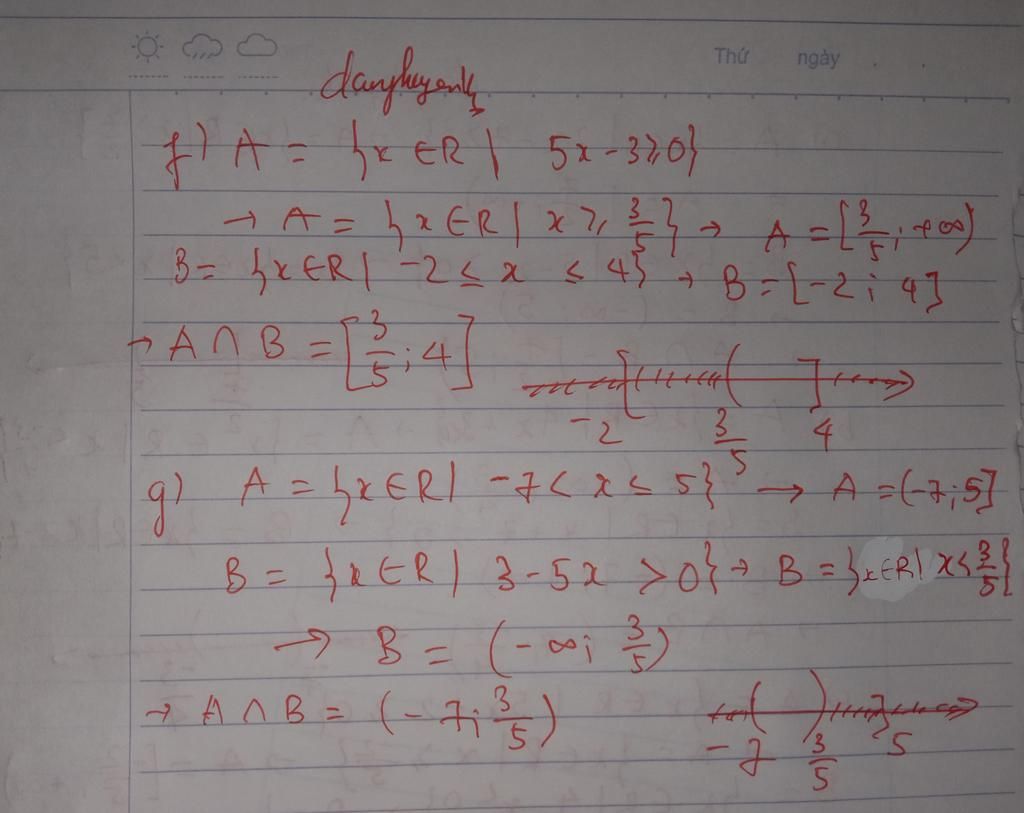 Thứ ngày
danghuyenk
f) A = {x ∈ R | 5x - 3 ≥ 0}
→ A = {x ∈ R | x ≥ 3/5} → A = [3/5; +∞)
B = {x ∈ R | -2 ≤ x ≤ 4} → B = [-2; 4]
→ A ∩ B = [3/5; 4]
-2 3/5 4
g) A = {x ∈ R | -7 < x ≤ 5} → A = (-7; 5]
B = {x ∈ R | 3 - 5x > 0} → B = {x ∈ R | x < 3/5}
→ B = (-∞; 3/5)
→ A ∩ B = (-7; 3/5)
-7 3/5 5